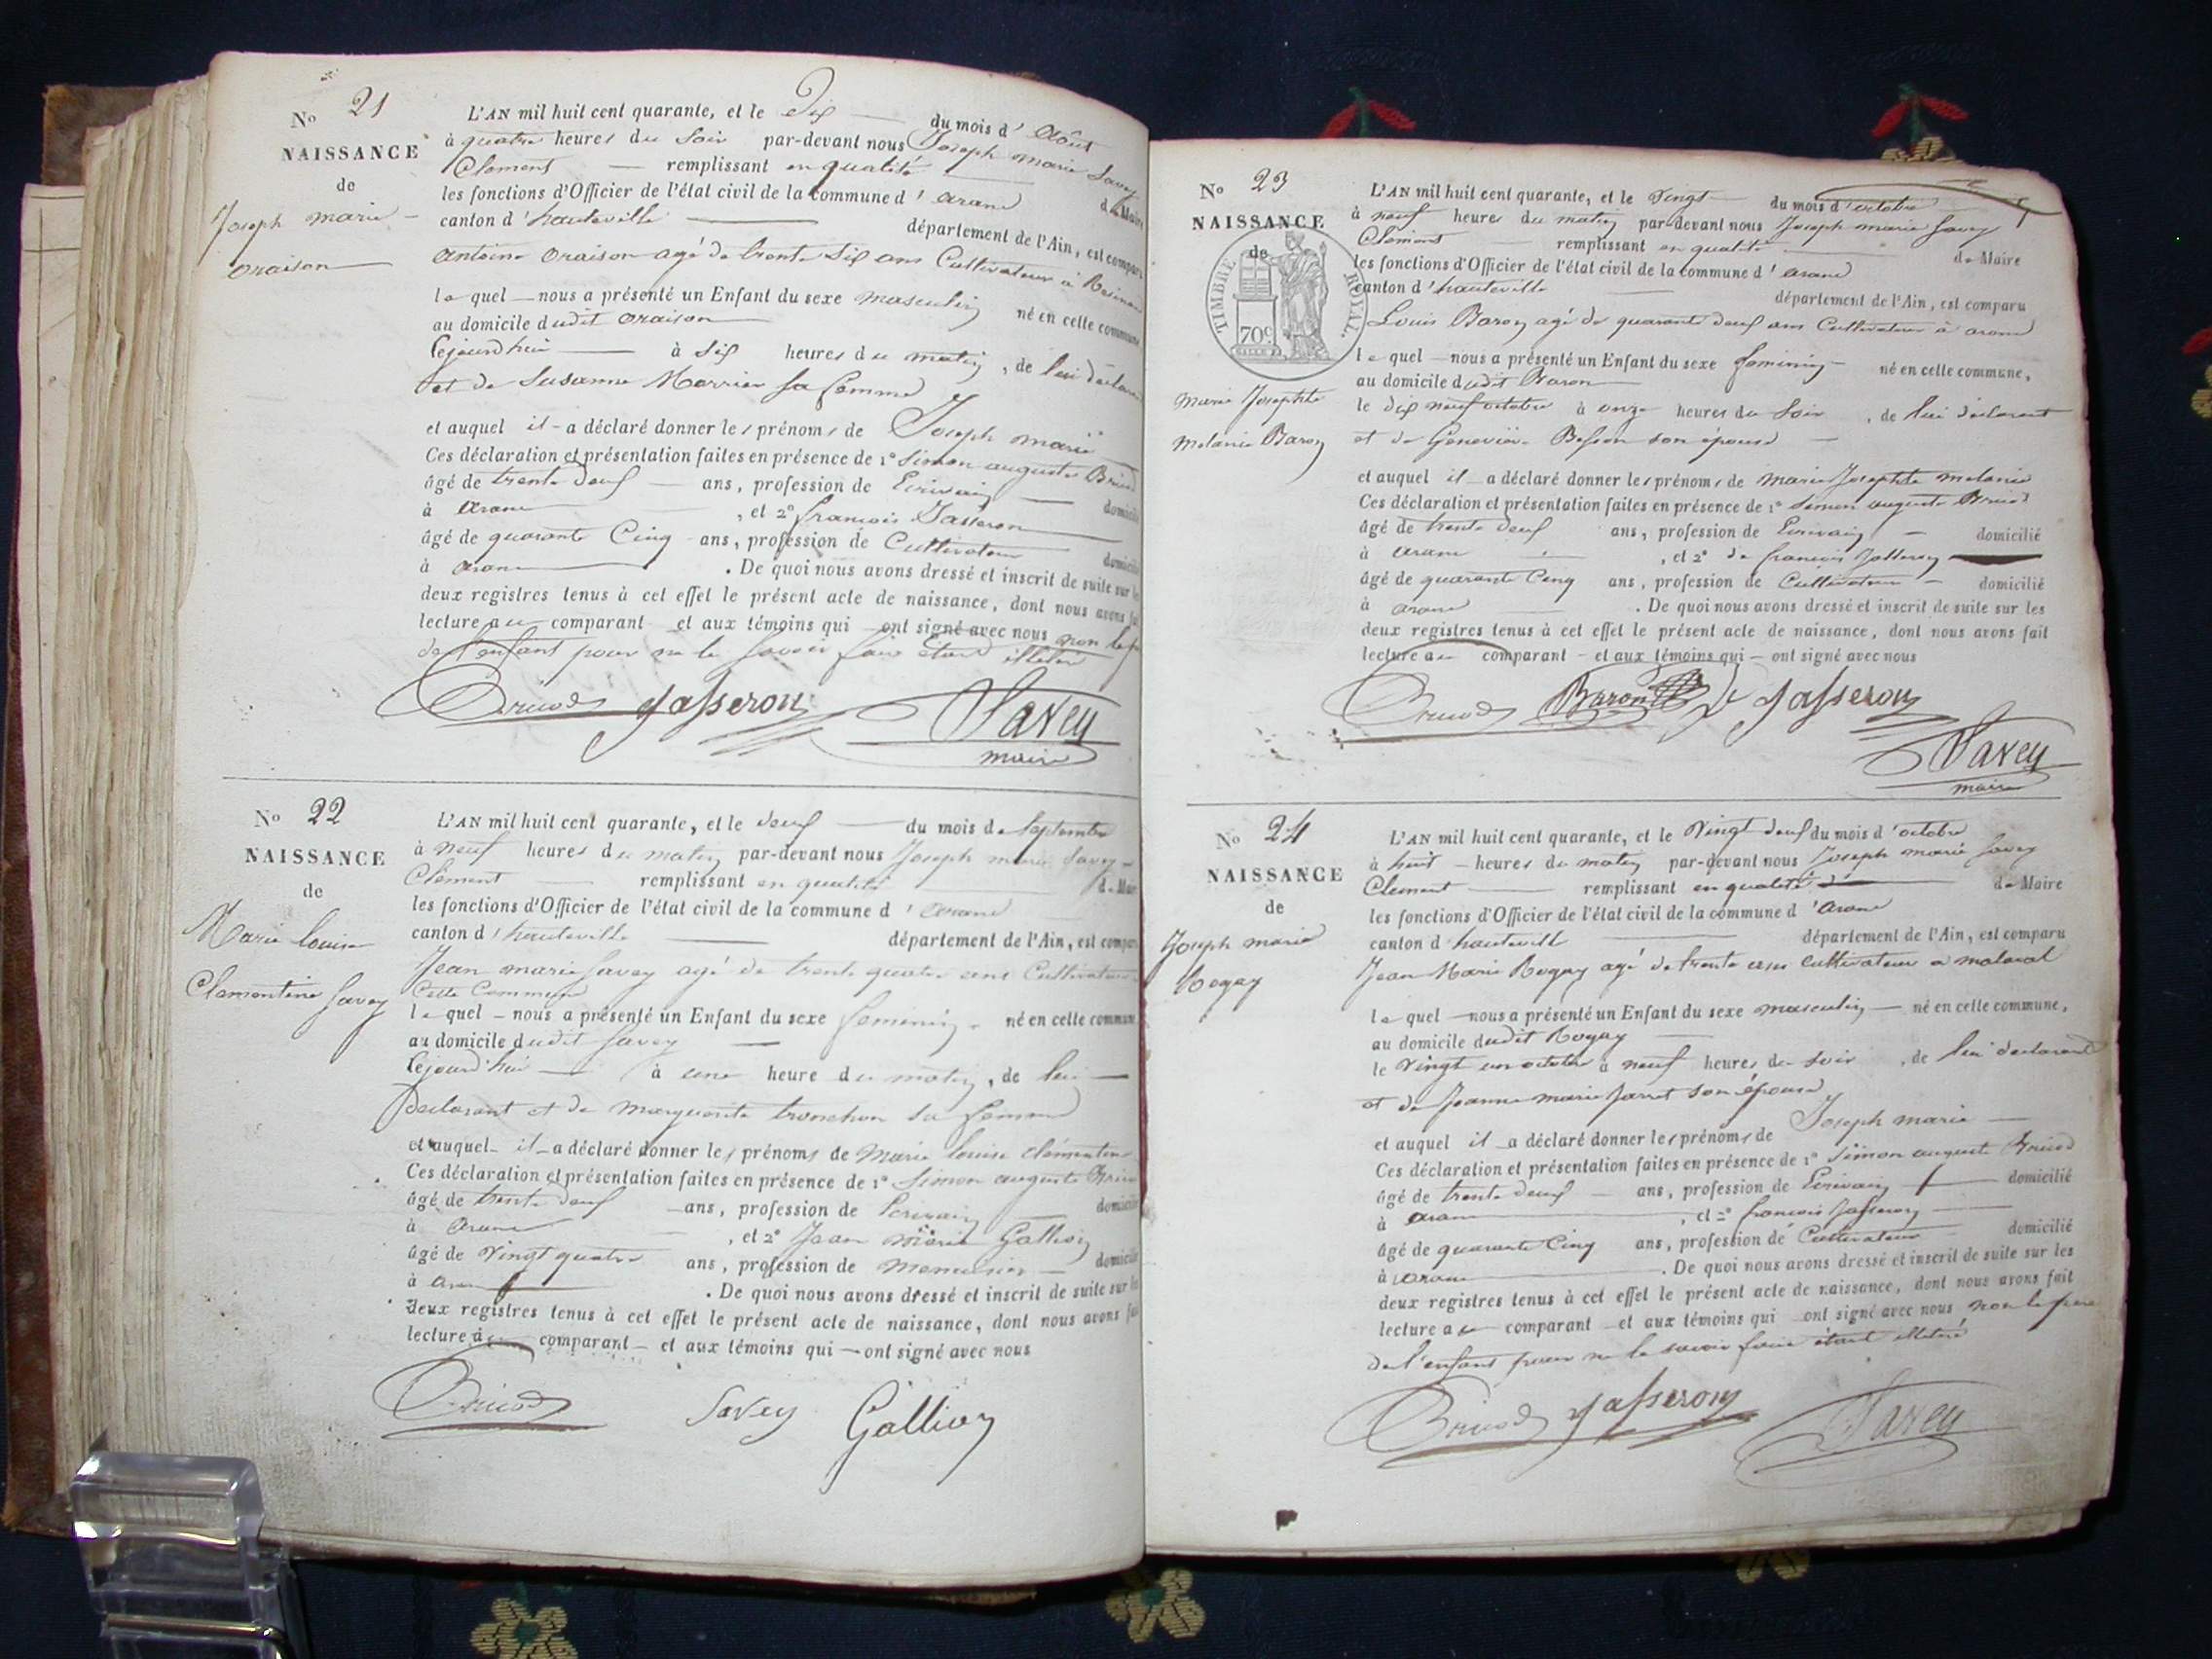 No 21
NAISSANCE
de
Joseph marie
oraison
L'AN mil huit cent quarante, et le Dix du mois d' Août
à quatre heures du Soir par-devant nous Joseph marie Savey
Clement remplissant en qualité de Maire
les fonctions d'Officier de l'état civil de la commune d' arane
canton d' hauteville département de l'Ain, est comparu
Antoine oraison agé de trente Six ans Cultivateur à
le quel nous a présenté un Enfant du sexe masculin né en cette commune
au domicile dudit oraison
à Six heures du matin, de lui
et de Susanne Marrier sa femme
et auquel il a déclaré donner les prénoms de Joseph marie
Ces déclaration et présentation faites en présence de 1º Simon auguste
âgé de trente deux ans, profession de Ecrivain
à arane, et 2º francois Jasseron
âgé de quarante Cinq ans, profession de Cultivateur
à arane. De quoi nous avons dressé et inscrit de suite sur
deux registres tenus à cet effet le présent acte de naissance, dont nous avons
lecture au comparant et aux témoins qui ont signé avec nous non le
de l'enfant pour ne le savoir faire étant
Jasseron Savey
maire
No 22
NAISSANCE
de
Marie louise
Clementine Savey
L'AN mil huit cent quarante, et le deux du mois de Septembre
à neuf heures du matin par-devant nous Joseph marie Savey
Clément remplissant en qualité
les fonctions d'Officier de l'état civil de la commune d' arane
canton d' hauteville département de l'Ain, est
Jean marie Savey agé de trente quatre ans Cultivateur
Cette Commune
le quel nous a présenté un Enfant du sexe feminin né en cette
au domicile dudit Savey
à une heure du matin, de lui
Declarant et de marguerite tronchon sa femme
et auquel il a déclaré donner les prénoms de Marie louise clémentine
Ces déclaration et présentation faites en présence de 1º Simon auguste
âgé de trente deux ans, profession de Ecrivain
à arane, et 2º Jean marie Gallion
âgé de Vingt quatre ans, profession de menuisier
à. De quoi nous avons dressé et inscrit de suite sur
deux registres tenus à cet effet le présent acte de naissance, dont nous avons
lecture au comparant et aux témoins qui ont signé avec nous
Savey Gallion
No 23
NAISSANCE
de
TIMBRE ROYAL.
70c.
Marie Josephte
Melanie Baron
L'AN mil huit cent quarante, et le Vingt du mois d'octobre
à neuf heures du matin par-devant nous Joseph marie Savey
Clement remplissant en qualité de Maire
les fonctions d'Officier de l'état civil de la commune d' arane
canton d' hauteville département de l'Ain, est comparu
Louis Baron agé de quarante deux ans Cultivateur à arane
le quel nous a présenté un Enfant du sexe feminin né en cette commune,
au domicile dudit Baron
le dix neuf octobre à onze heures du Soir, de lui déclarant
et de Besson son épouse
et auquel il a déclaré donner les prénoms de marie Josephte melanie
Ces déclaration et présentation faites en présence de 1º Simon auguste
âgé de trente deux ans, profession de Ecrivain domicilié
à arane, et 2º de francois Jasseron
âgé de quarante Cinq ans, profession de Cultivateur domicilié
à arane. De quoi nous avons dressé et inscrit de suite sur les
deux registres tenus à cet effet le présent acte de naissance, dont nous avons fait
lecture au comparant et aux témoins qui ont signé avec nous
Baron Jasseron
Savey
maire
No 24
NAISSANCE
de
Joseph marie
Rogay
L'AN mil huit cent quarante, et le Vingt deux du mois d'octobre
à huit heures du matin par-devant nous Joseph marie Savey
Clement remplissant en qualité de Maire
les fonctions d'Officier de l'état civil de la commune d' arane
canton d' hauteville département de l'Ain, est comparu
Jean Marie Rogay agé de trente ans cultivateur a malaval
le quel nous a présenté un Enfant du sexe masculin né en cette commune,
au domicile dudit Rogay
le Vingt un octobre à neuf heures du soir, de lui declarant
et de Jeanne marie Jarret son épouse
et auquel il a déclaré donner les prénoms de Joseph marie
Ces déclaration et présentation faites en présence de 1º Simon auguste
âgé de trente deux ans, profession de Ecrivain domicilié
à arane, et 2º francois Jasseron
âgé de quarante Cinq ans, profession de Cultivateur domicilié
à arane. De quoi nous avons dressé et inscrit de suite sur les
deux registres tenus à cet effet le présent acte de naissance, dont nous avons fait
lecture au comparant et aux témoins qui ont signé avec nous non le pere
de l'enfant pour ne le savoir faire étant
Jasseron Savey